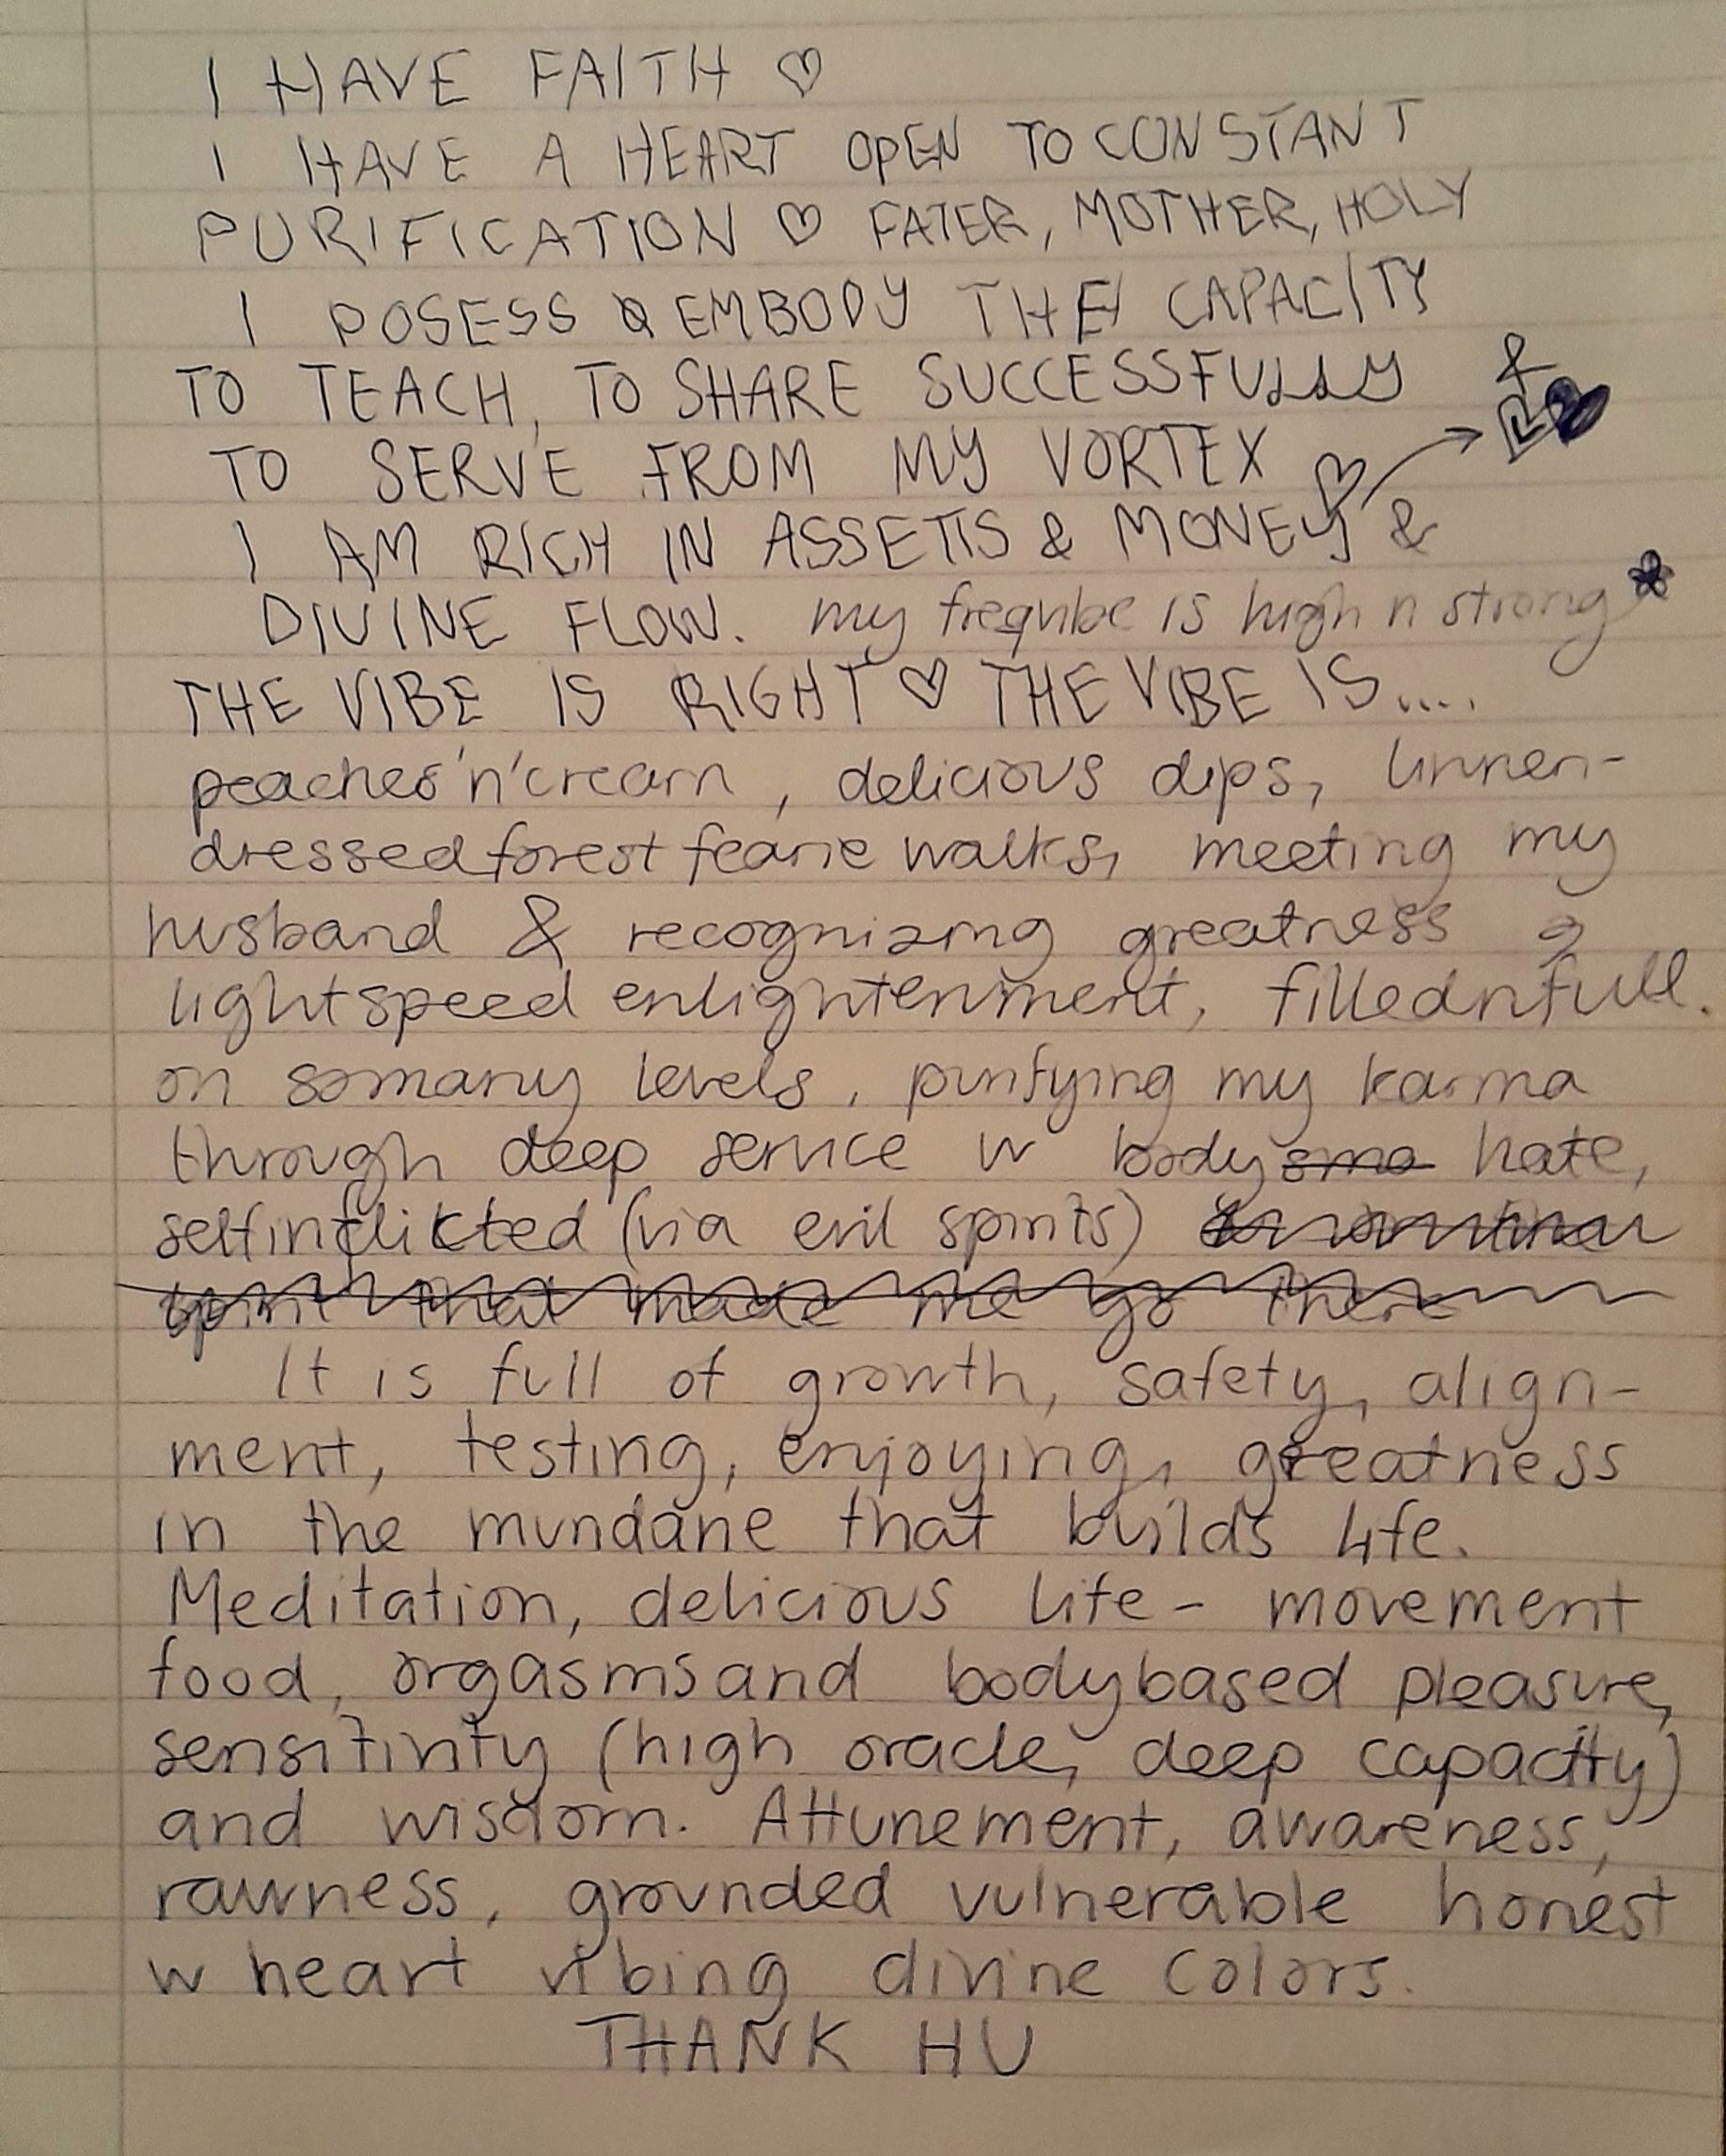 I HAVE FAITH ♡
I HAVE A HEART OPEN TO CONSTANT
PURIFICATION ♡ FATER, MOTHER, HOLY
I POSESS & EMBODY THE CAPACITY
TO TEACH, TO SHARE SUCCESSFULLY &
TO SERVE FROM MY VORTEX ♡
I AM RICH IN ASSETTS & MONEY &
DIVINE FLOW. my freqvibe is high n strong
THE VIBE IS RIGHT ♡ THE VIBE IS....
peaches'n'cream, delicious dips, linnen-
dressed forest fearie walks, meeting my
husband & recognizing greatness
lightspeed enlightenment, fillednfull.
on somany levels, purifying my karma
through deep service w body hate,
selfinflickted (via evil spirits)
spirit that made me go there
It is full of growth, safety, align-
ment, testing, enjoying, greatness
in the mundane that builds life.
Meditation, delicious life - movement
food, orgasms and bodybased pleasure,
sensitivity (high oracle, deep capacity)
and wisdom. Attunement, awareness,
rawness, grounded vulnerable honest
w heart vibing divine colors.
THANK HU